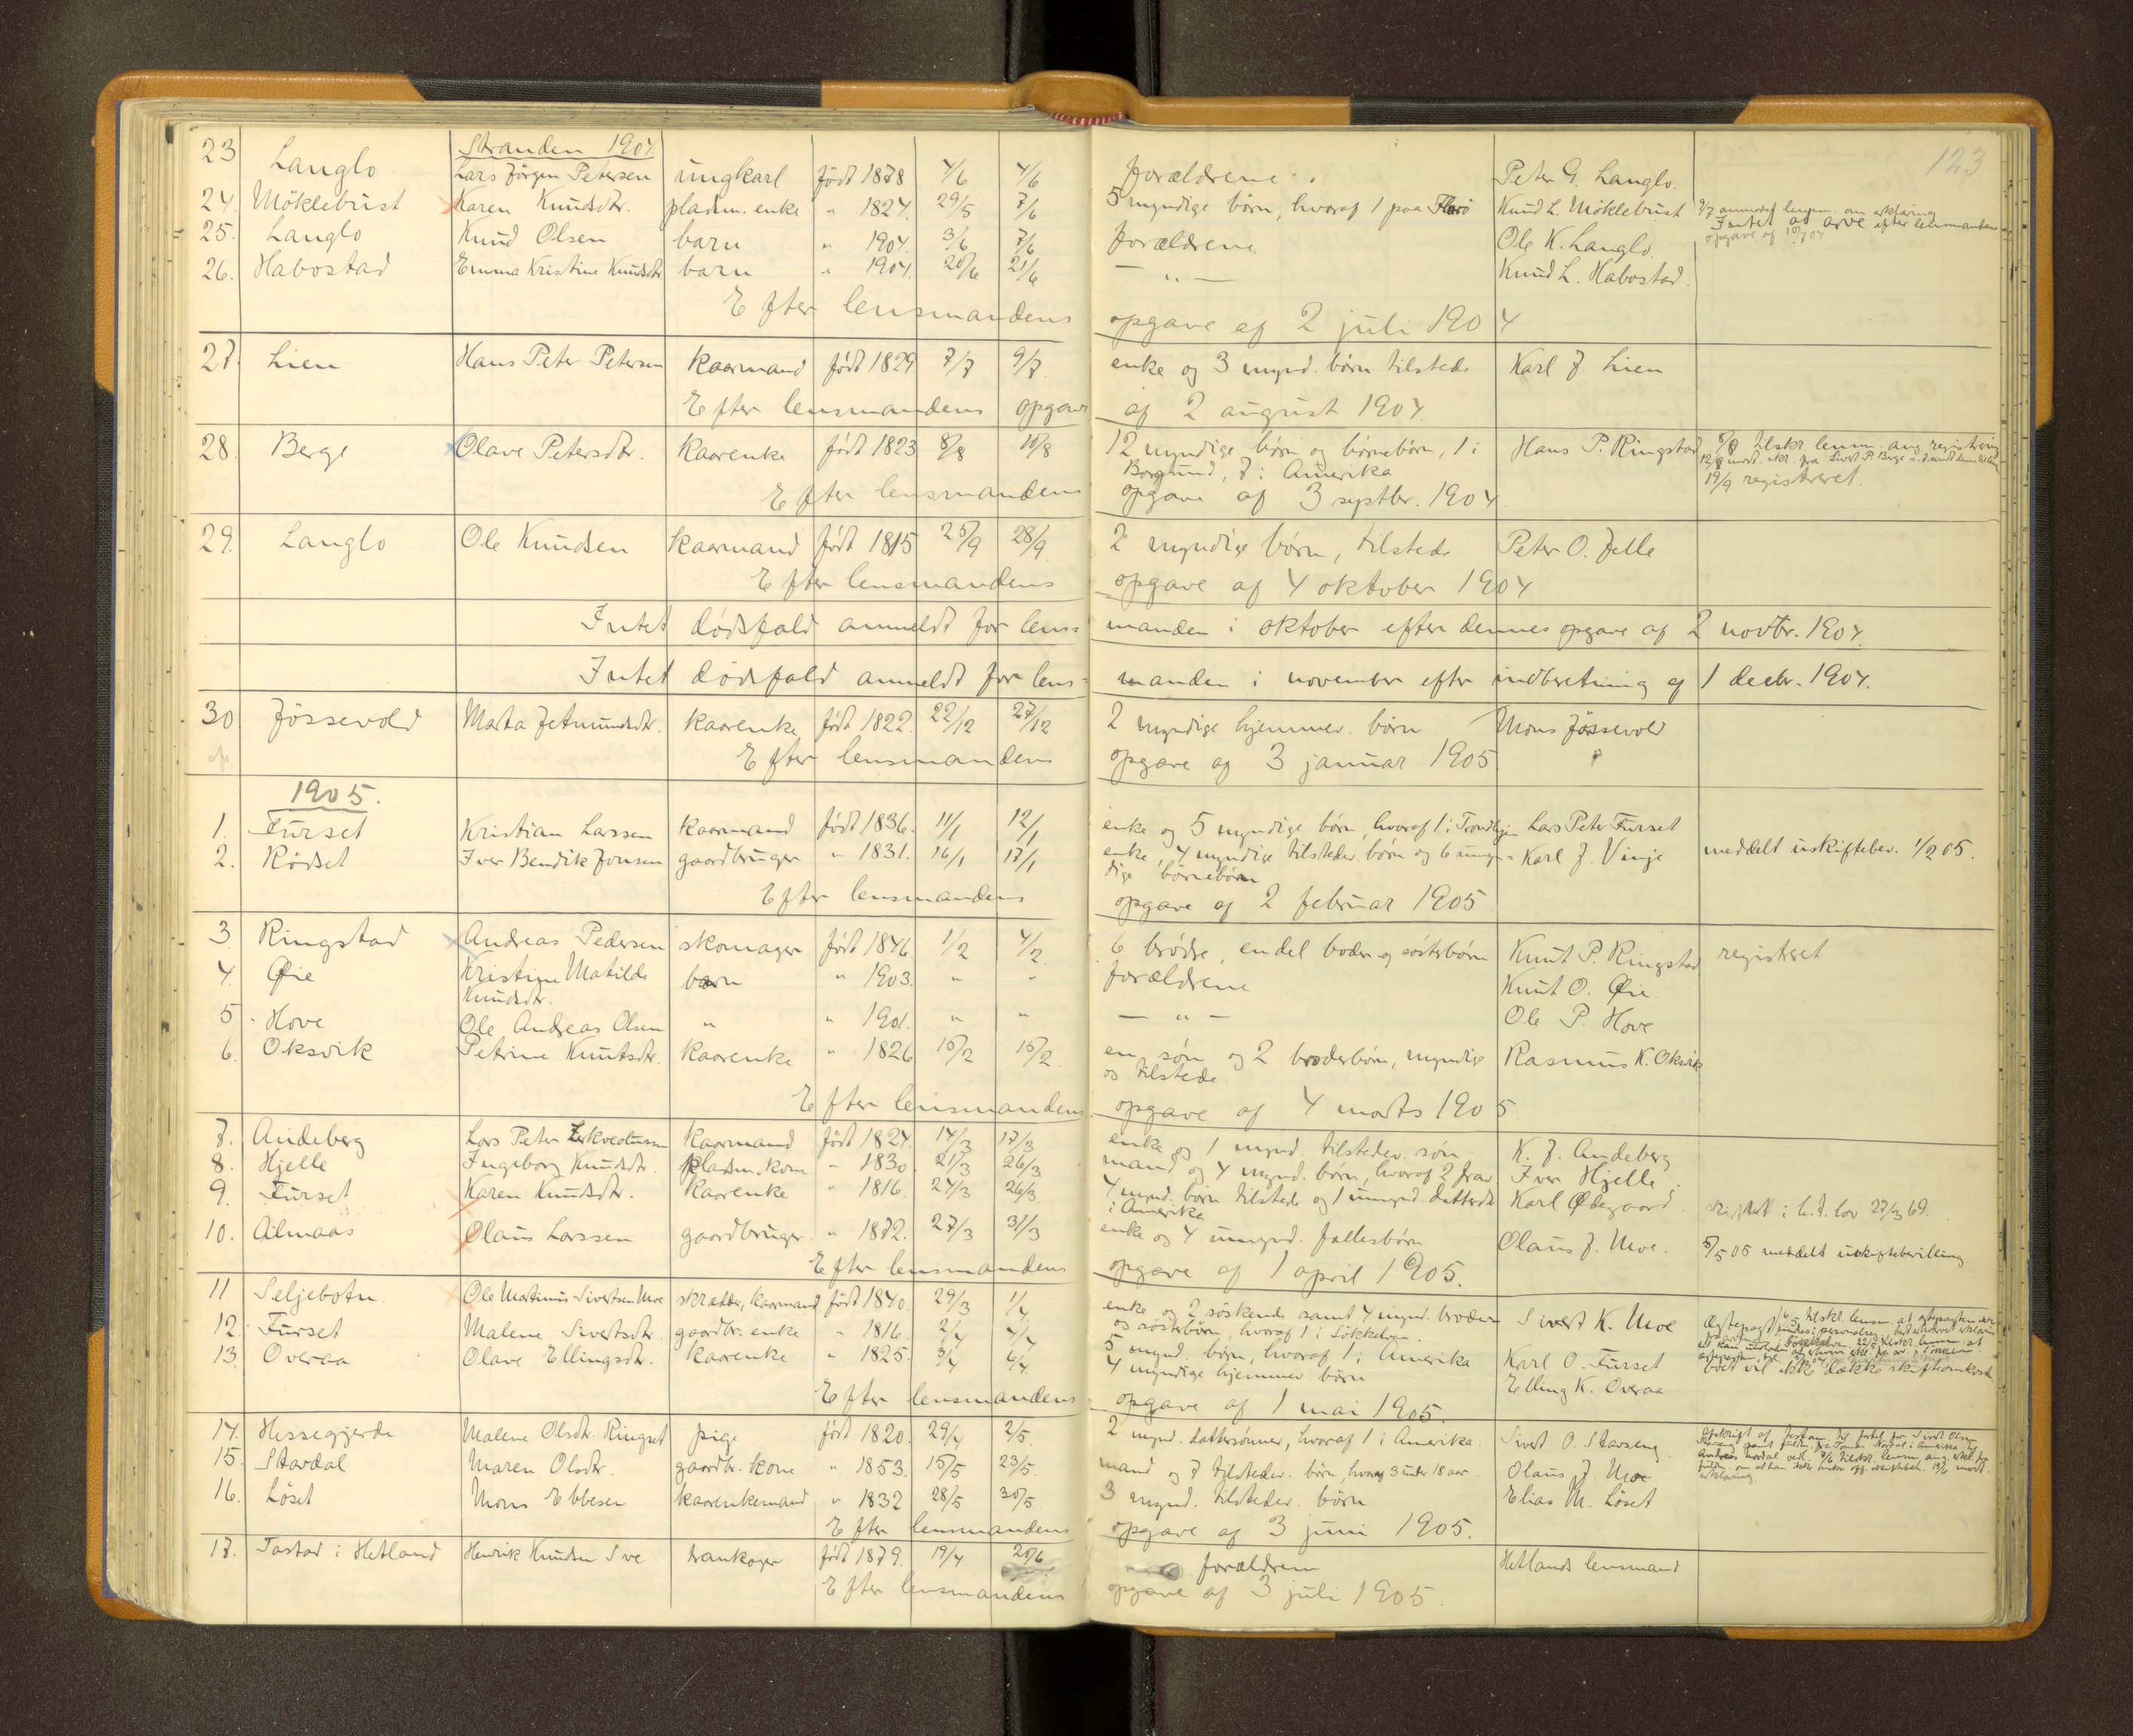 123
Stranden 1904.
23 Langlo Lars Jörgen Petersen ungkarl födt 1878 4/6 4/6 forældrene. Peter G. Langlo.
24. Möklebust Karen Knudsdtr. pladsm. enke " 1824. 29/5 7/6 5 myndige börn, hvoraf 1 paa Knud L. Möklebust 9/7 anmodet lensm. om erklæring
Intet at arve efter lensmandens
opgave af 20/7 04
25. Langlo Knud Olsen barn " 1904. 3/6 7/6 forældrene Ole K. Langlo.
26. Habostad Emma Kristine Knudsdtr. barn " 1904. 20/6 21/6 — " — Knud L. Habostad.
Efter lensmandens opgave af 2 juli 1904
27. Lien Hans Peter Petersen kaarmand födt 1829. 7/7 9/7. enke og 3 mynd. börn tilstede Karl J. Lien
Efter lensmandens opgave af 2 august 1904.
28. Berge Olave Petersdtr. kaarenke födt 1823 8/8 10/8 12 myndige börn og börnebörn, 1 i Hans P. Ringstad 8/8 tilskr. lensm. ang. registrering
Borgund, 7 i Amerika
19/9 registreret.
Efter lensmandens opgave af 3 septbr. 1904.
29. Langlo Ole Knudsen kaarmand födt 1815 25/9 28/9. 2 myndige börn, tilstede Peter O. Jelle
Efter lensmandens opgave af 4 oktober 1904
Intet dödsfald anmeldt for lens= manden i oktober efter dennes opgave af 2 novbr. 1904.
Intet dödsfald anmeldt for lens= manden i november efter indberetning af 1 decbr. 1904.
30 Jössevold Marta Jetmundsdtr. kaarenke födt 1822. 22/12 27/12 2 myndige hjemmev. börn Mons Jössevold
Efter lensmandens opgave af 3 januar 1905
1905.
1. Furset Kristian Larssen kaarmand födt 1836. 11/1 12/1 enke og 5 myndige börn, hvoraf 1 i Trondhjem Lars Peter Furset
2. Rödset Iver Bendik Jonsen gaardbruger " 1831. 16/1 17/1 enke, 4 myndige tilstedev. börn og 6 umyn= Karl J. Vinje meddelt uskiftebev. 1/2 05.
dige börnebörn
Efter lensmandens opgave af 2 februar 1905
3. Ringstad Andreas Pedersen skomager födt 1846. 1/2 4/2. 6 brödre, endel broder og sösterbörn Knut P. Ringstad registreret
4. Øie Kristine Matilde barn " 1903. " " forældrene Knut O. Øie.
Knudsdtr.
5. Hove Ole Andreas Olsen " " 1901. " " — " — Ole P. Hove
6. Oksvik Petrine Knutsdtr. kaarenke " 1826 15/2 15/2. en sön og 2 broderbörn, myndige Rasmus K. Oksvik
og tilstede
Efter lensmandens opgave af 4 marts 1905
7. Andeberg Lars Peter kaarmand födt 1824. 14/3 17/3 enke og 1 mynd. tilstedev. sön K. J. Andeberg
8. Hjelle Ingeborg Knudsdtr. pladsm. kone " 1830. 21/3 26/3 mand og 4 mynd. börn, hvoraf 2 frav. Iver Hjelle.
9. Furset Karen Knudsdtr. kaarenke " 1816. 24/3 26/3 4 mynd. börn tilstede og 1 umynd. datterdtr. Karl Ødegaard. skiftet i h.t. lov 27/3 69.
i Amerika
10. Almaas Olaus Larssen gaardbruger " 1872. 27/3 31/3 enke og 4 umynd. fællesbörn Olaus J. Moe. 5/5 05 meddelt uskiftebevilling
Efter lensmandens opgave af 1 april 1905.
11 Seljebotn Ole Martinus Sivertsen Moe skrædder, kaarmand födt 1840. 29/3 1/4 enke og 2 söskende samt 4 mynd. broder Sivert K. Moe
og sösterbörn, hvoraf 1 i
boet vil ikke dække skifteomkostn.
12. Furset Malene Sivertsdtr. gaardbr. enke " 1816. 2/4 4/4 5 mynd. börn, hvoraf 1 i Amerika Karl O. Furset
13. Overaa Olave Ellingsdtr. kaarenke " 1825. 3/4 6/4. 4 myndige hjemmev börn Elling K. Overaa
Efter lensmandens opgave af 1 mai 1905.
14. Hessegjerde Malene Olsdtr. Ringset pige födt 1820. 29/4 2/5. 2 mynd. dattersönner, hvoraf 1 i Amerika. Sivert O. Stavseng.
15. Stavdal Maren Olsdtr. gaardbr. kone " 1853. 15/5 23/5. mand og 7 tilstedev. börn, hvoraf 3 under 18 aar Olaus J. Moe
16. Löset Mons Ebbesen kaarenkemand " 1832 28/5 30/5. 3 mynd. tilstedev. börn Elias M. Löset
Efter lensmandens opgave af 3 juni 1905.
17. Tastad i Hetland Henrik Knudsen Sve trankoger födt 1879. 19/4 20/6 forældrene Hetlands lensmand
Efter lensmandens opgave af 3 juli 1905.